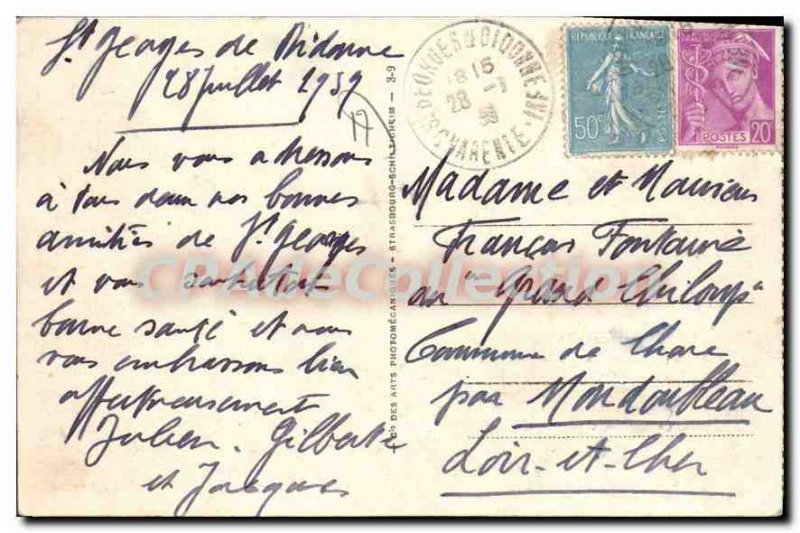 St Georges de Didonne
28 Juillet 1939
17
Nous vous adressons
à tous deux nos bonnes
amitiés de St Georges
et vous souhaitant
bonne santé et nous
vous embrassons bien
affectueusement
Julien. Gilberte
et Jacques
Cie DES ARTS PHOTOMÉCANIQUES - STRASBOURG-SCHILTIGHEIM - 3-9
ST GEORGES DE DIDONNE
18 15
28
CHARENTE INF.
REPUBLIQUE FRANÇAISE
50c
POSTES
20c
Madame et Monsieur
François Fontaine
au "Grand
Commune de
par Mondoubleau
Loir-et-Cher
CPAdeCollection